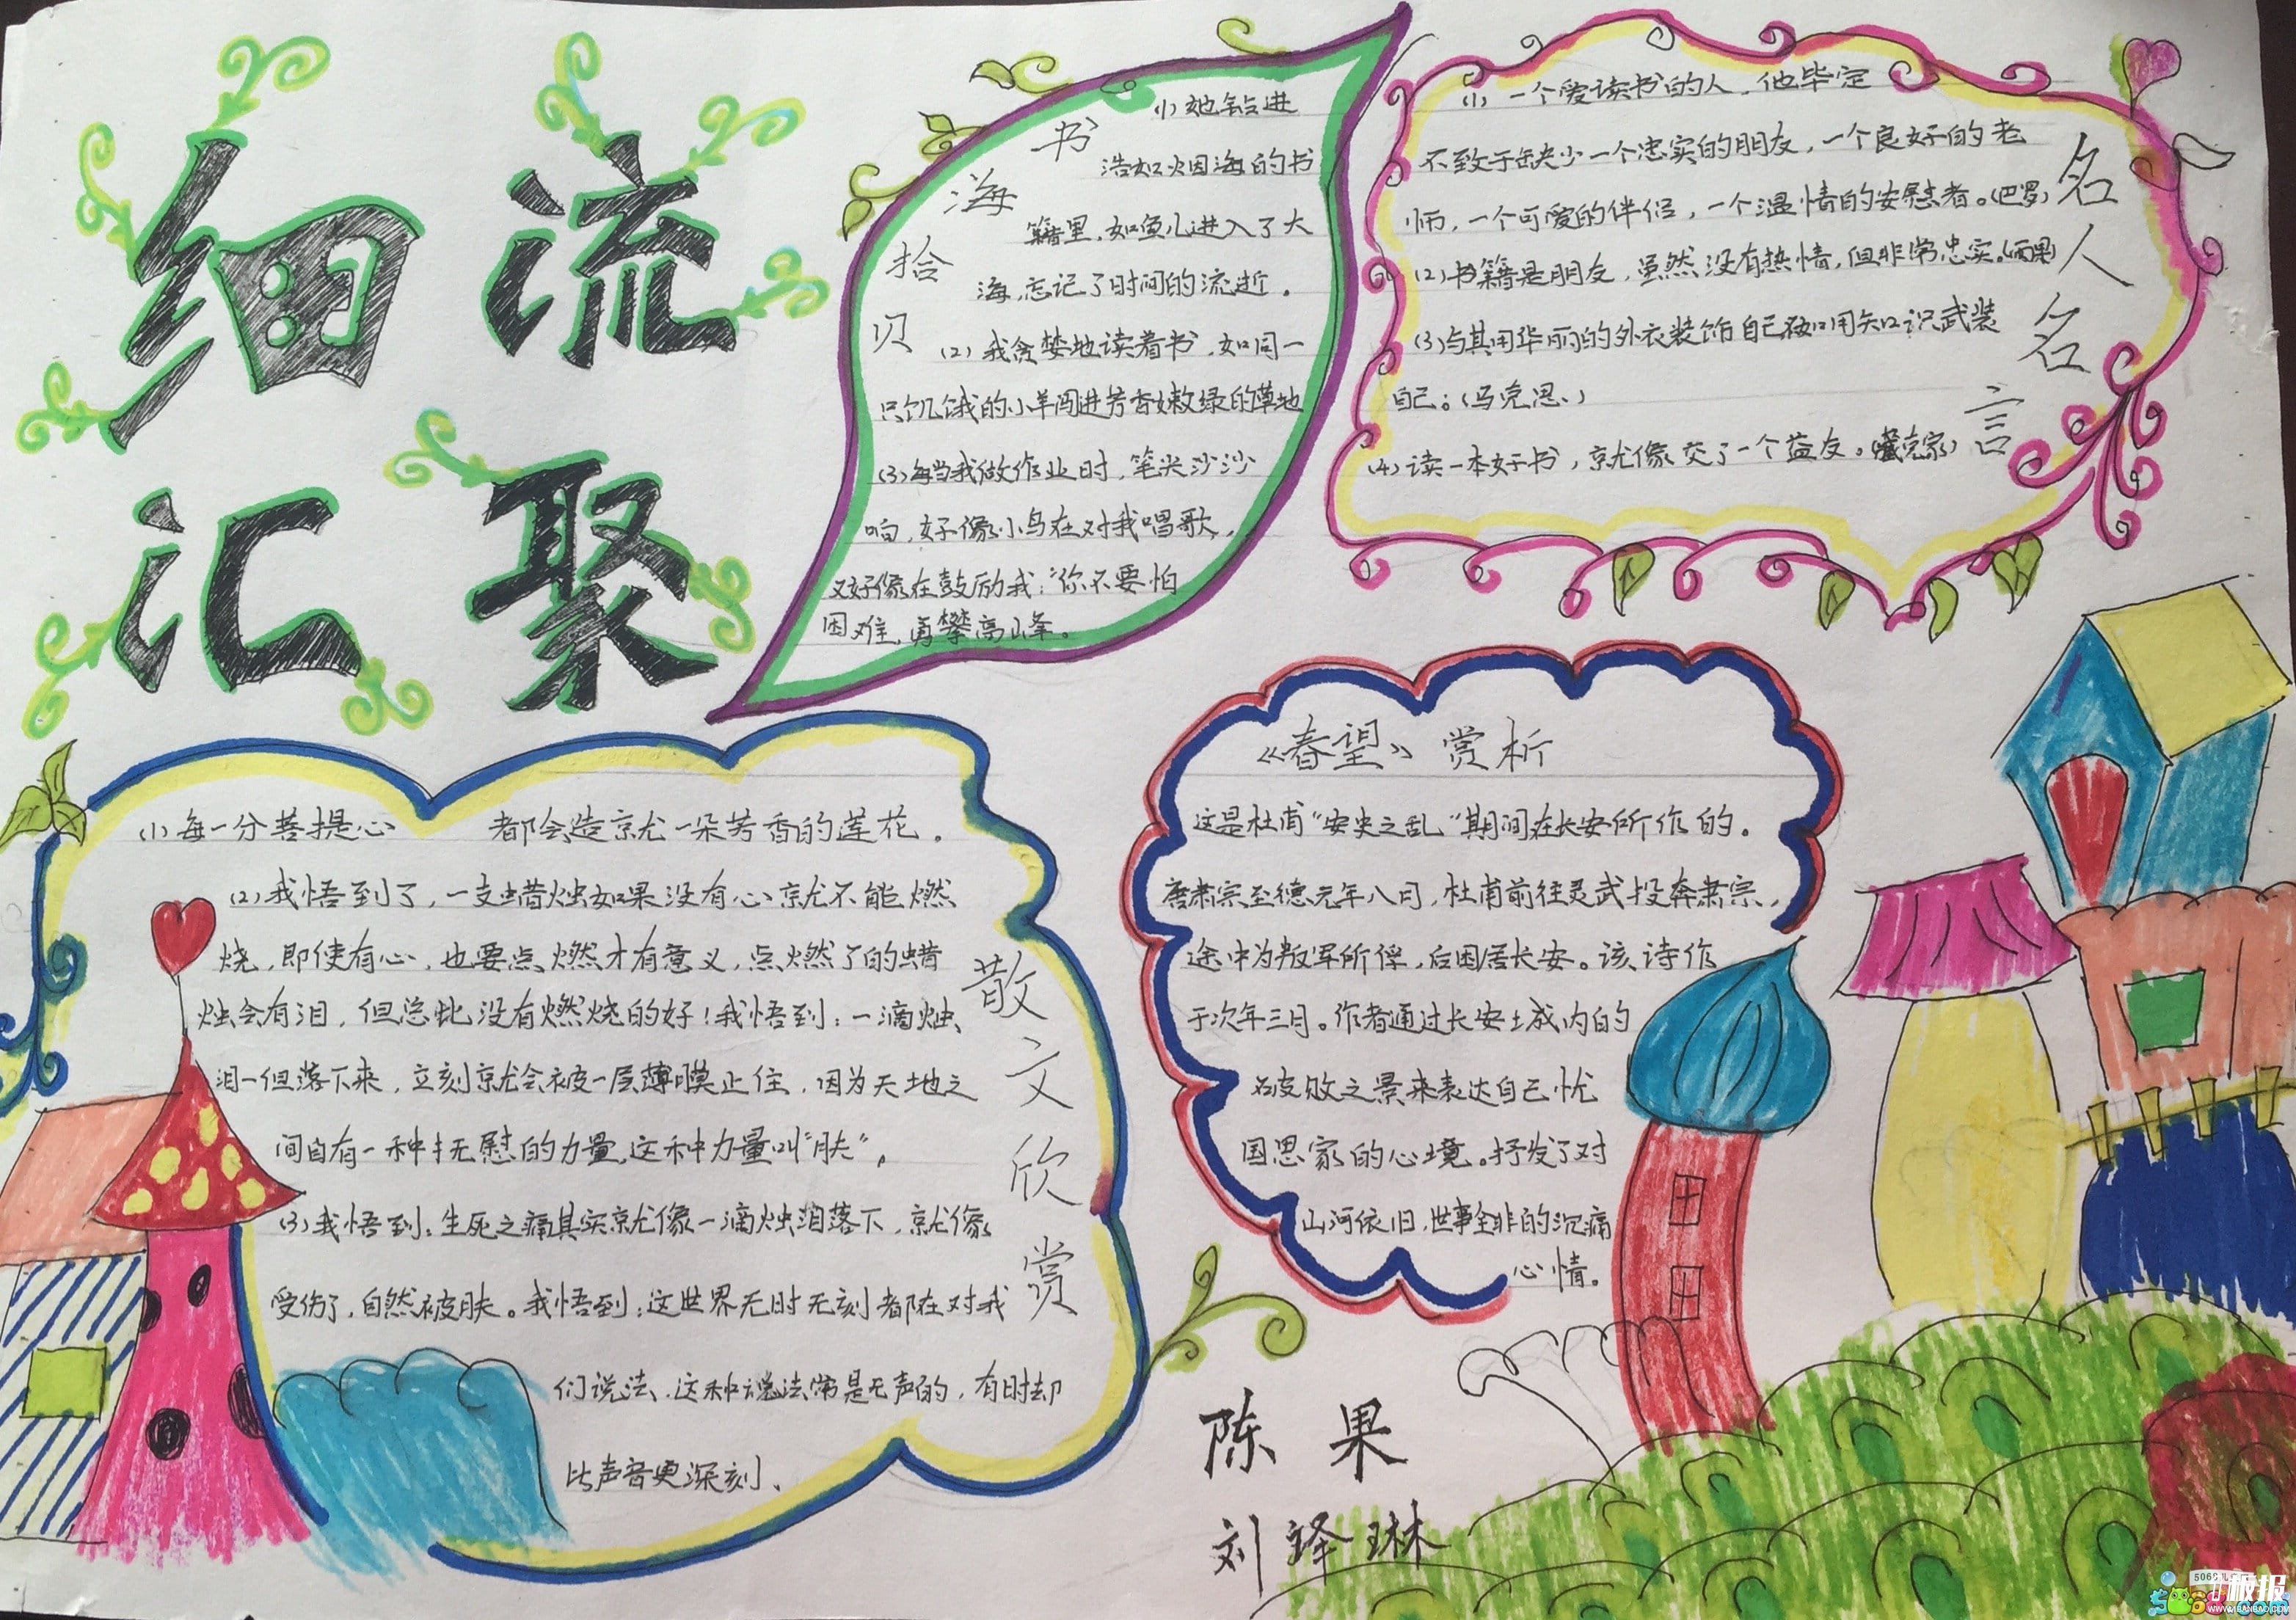 细流
汇聚
书海拾贝
(1)她钻进
浩如烟海的书
籍里,如鱼儿进入了大
海,忘记了时间的流逝。
(2)我贪婪地读着书,如同一
只饥饿的小羊闯进芳香嫩绿的草地
(3)每当我做作业时,笔尖沙沙
响,好像小鸟在对我唱歌,
又好像在鼓励我:“你不要怕
困难,勇攀高峰。
名人名言
(1)一个爱读书的人,他毕定
不致于缺少一个忠实的朋友,一个良好的老
师,一个可爱的伴侣,一个温情的安慰者。(巴罗)
(2)书籍是朋友,虽然没有热情,但非常忠实。(雨果)
(3)与其用华丽的外衣装饰自己不如用知识武装
自己。(马克思)
(4)读一本好书,就像交了一个益友。(臧克家)
散文欣赏
(1)每一分菩提心 都会造就一朵芳香的莲花。
(2)我悟到了,一支蜡烛如果没有心就不能燃
烧,即使有心,也要点燃才有意义,点燃了的蜡
烛会有泪,但总比没有燃烧的好!我悟到:一滴烛
泪一但落下来,立刻就会被一层薄膜止住,因为天地之
间自有一种抚慰的力量,这种力量叫“肤”。
(3)我悟到:生死之痛其实就像一滴烛泪落下,就像
受伤了,自然被肤。我悟到:这世界无时无刻都在对我
们说法,这种说法常是无声的,有时却
比声音更深刻、
《春望》赏析
这是杜甫“安史之乱”期间在长安所作的。
唐肃宗至德元年八月,杜甫前往灵武投奔肃宗,
途中为叛军所俘,后困居长安。该诗作
于次年三月。作者通过长安城内的
破败之景来表达自己忧
国思家的心境。抒发了对
山河依旧,世事全非的沉痛
心情。
陈果
刘铎琳
板报
WWW.1BANBAO.COM